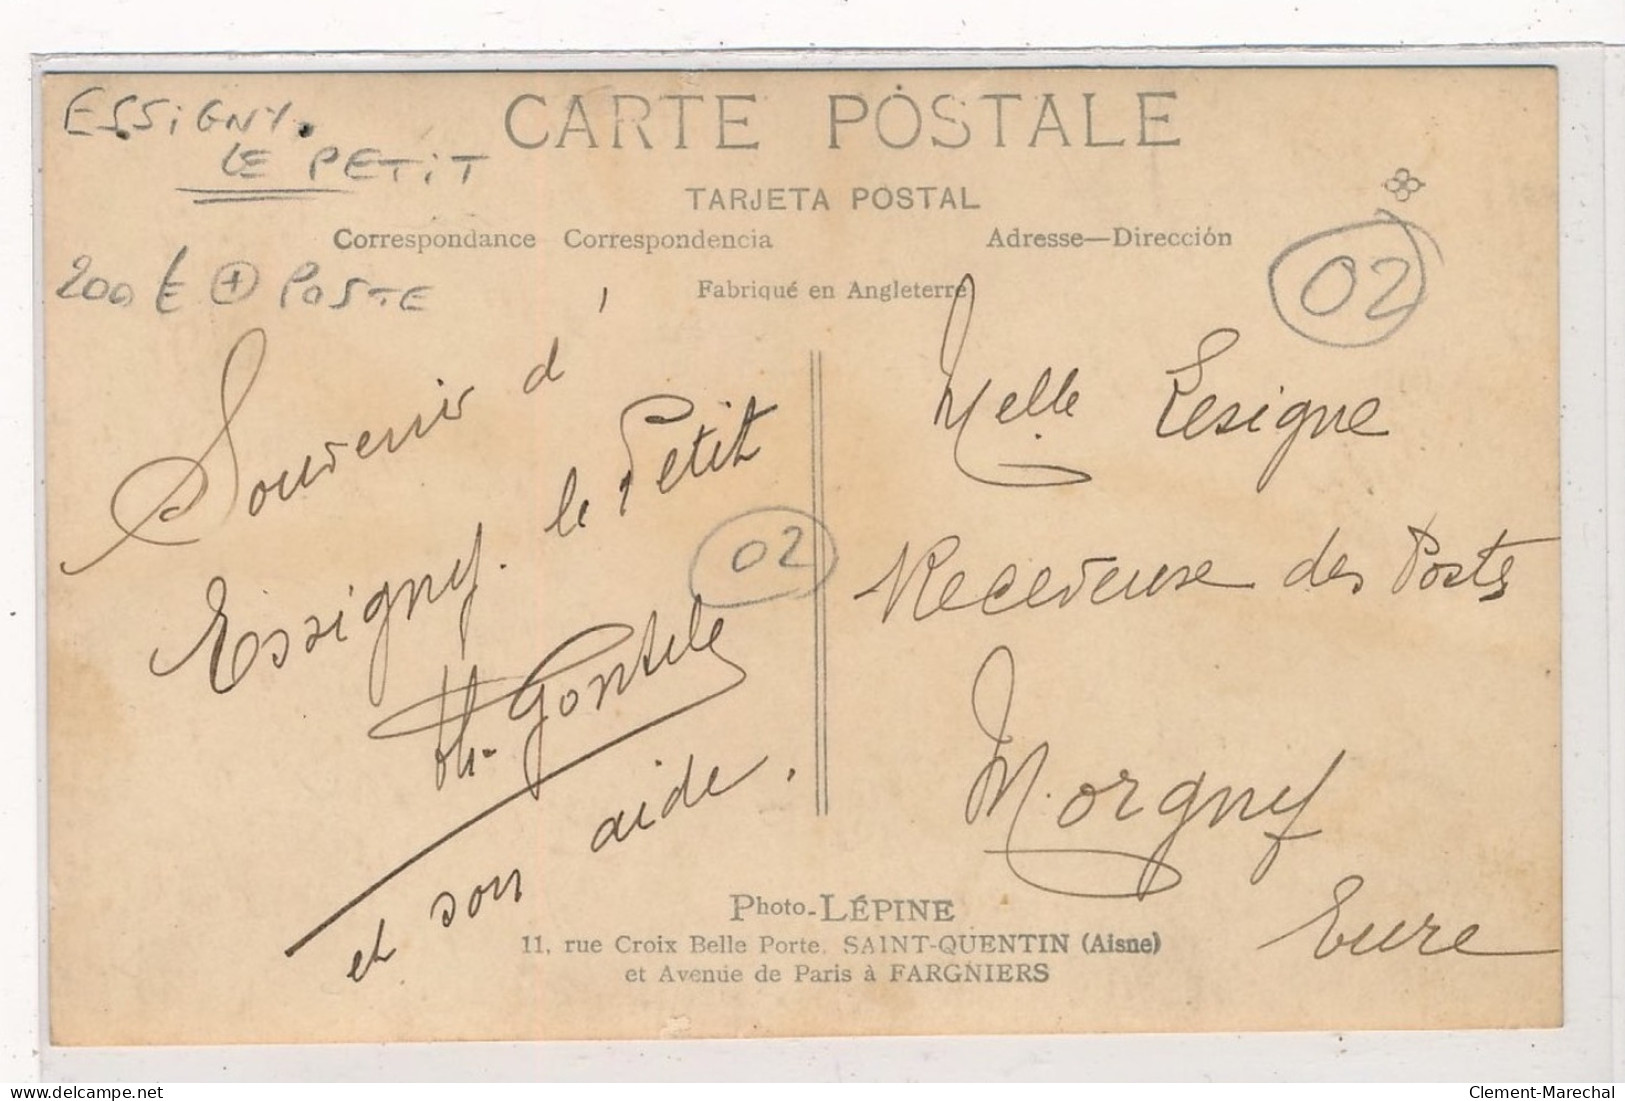 ESSIGNY.
LE PETIT
CARTE POSTALE
TARJETA POSTAL
Correspondance Correspondencia
Adresse—Dirección
200 € + POSTE
Fabriqué en Angleterre
02
Souvenir d'
Essigny. le Petit
02
et son aide.
Melle Lesigne
Receveuse des Postes
Morgny
Eure
Photo-LÉPINE
11, rue Croix Belle Porte. SAINT-QUENTIN (Aisne)
et Avenue de Paris à FARGNIERS
delcampe.net
Clement-Marechal